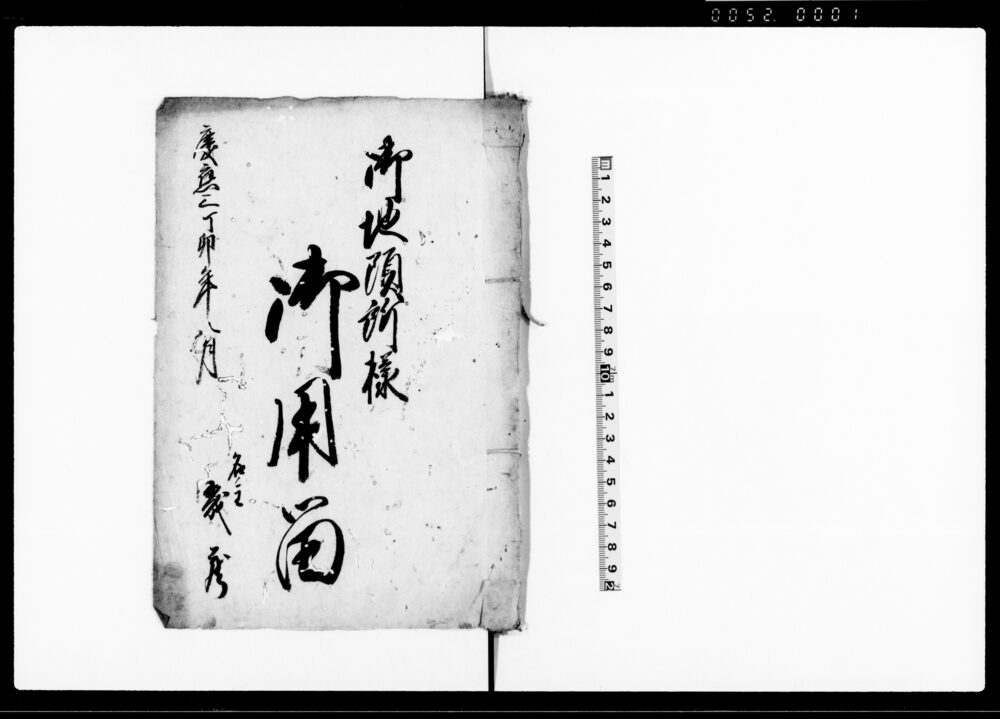 0052. 0001
御地頭所様
御用留
慶應三丁卯年八月
名主
1 2 3 4 5 6 7 8 9 10 1 2 3 4 5 6 7 8 9 2